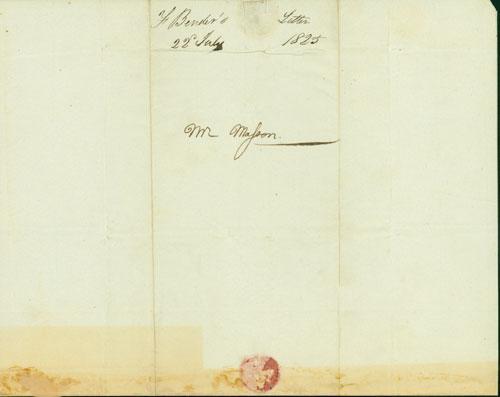 F Bender's Letter
22d July 1825
Mr Masson.